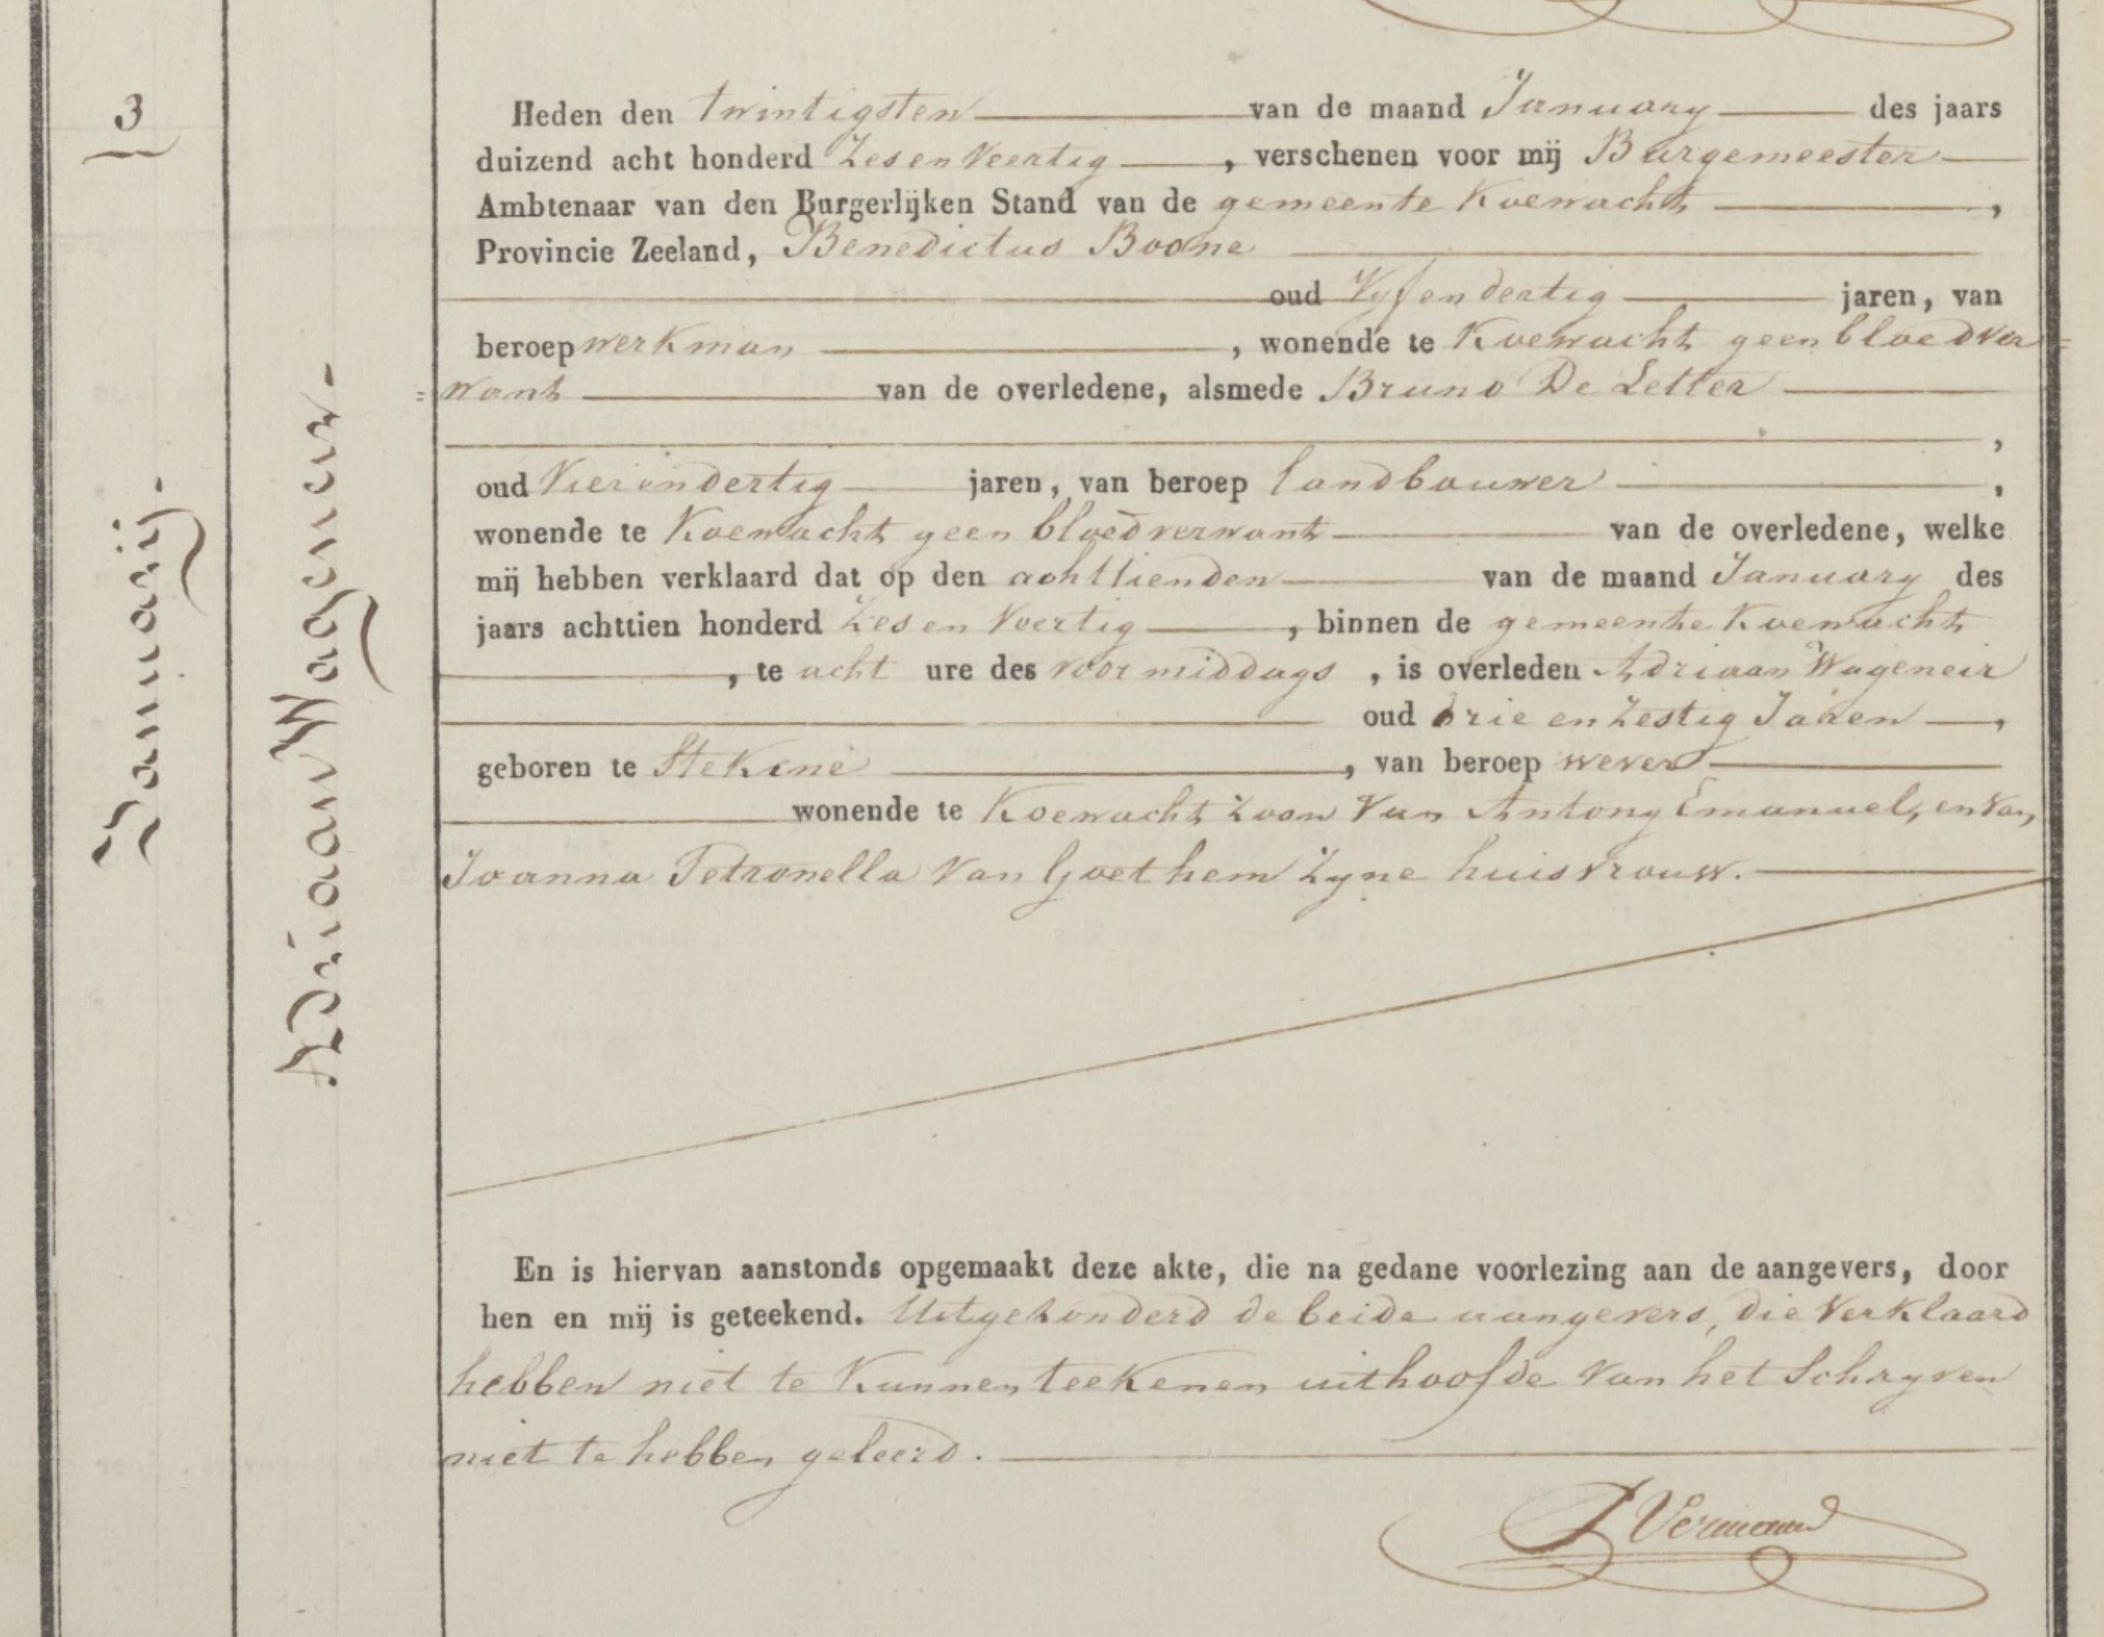 3
Januarij.
Adriaan Wageneir.
Heden den twintigsten van de maand January des jaars
duizend acht honderd Zes en Veertig, verschenen voor mij Burgemeester
Ambtenaar van den Burgerlijken Stand van de gemeente Koewacht,
Provincie Zeeland, Benedictus Boone
oud Vyf en dertig jaren, van
beroep werkman, wonende te Koewacht geen bloedver=
=want van de overledene, alsmede Bruno De Letter
,
oud Vier en dertig jaren, van beroep landbouwer,
wonende te Koewacht geen bloedverwant van de overledene, welke
mij hebben verklaard dat op den achttienden van de maand January des
jaars achttien honderd Zes en Veertig, binnen de gemeente Koewacht
, te acht ure des voormiddags, is overleden Adriaan Wageneir
oud drie en Zestig Jaren,
geboren te Stekene, van beroep wever
wonende te Koewacht Zoon Van Antony Emanuel, en van
Joanna Petronella Van Goethem Zyne huisvrouw.
En is hiervan aanstonds opgemaakt deze akte, die na gedane voorlezing aan de aangevers, door
hen en mij is geteekend. Uitgezonderd de beide aangevers, die Verklaard
hebben niet te Kunnen teekenen uithoofde van het Schryven
niet te hebben geleerd.